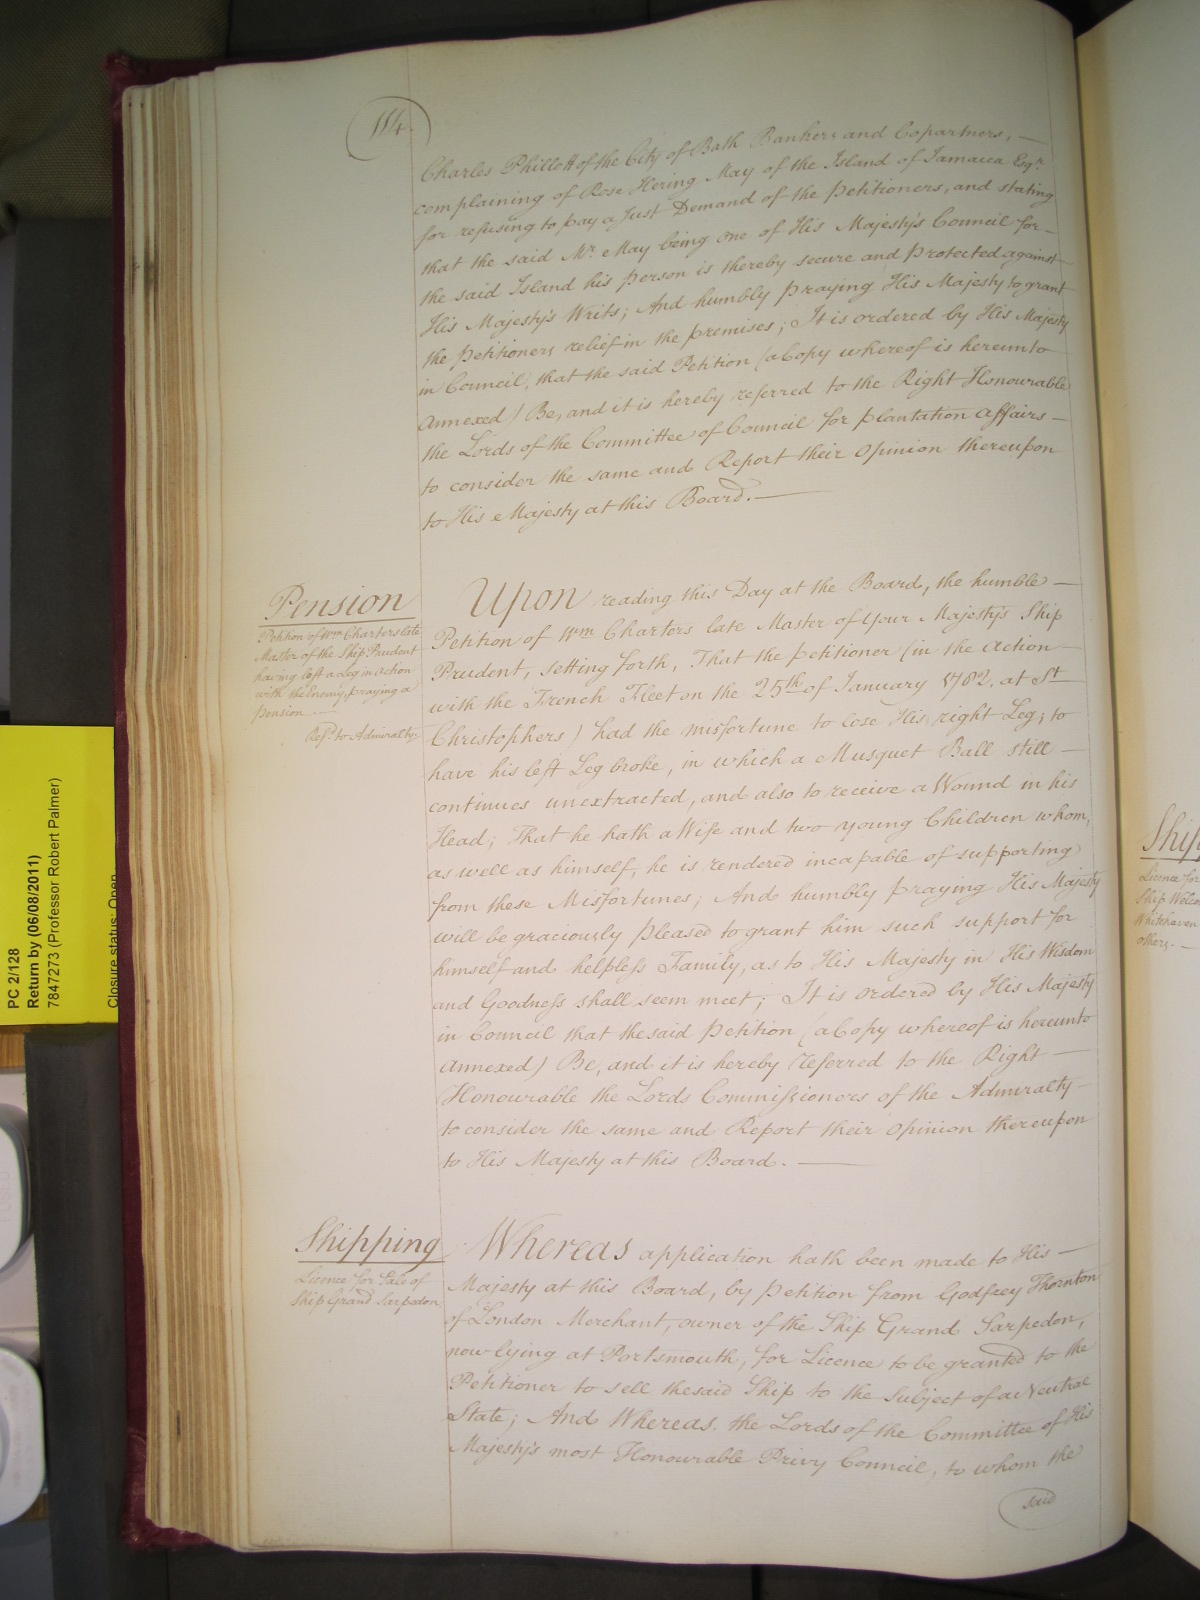 114.
Charles Phillott of the City of Bath Bankers and Copartners, —
complaining of Rose Hering May of the Island of Jamaica Esqr.
for refusing to pay a Just Demand of the Petitioners, and stating
that the said Mr. May being one of His Majesty's Council for —
the said Island his Person is thereby secure and Protected against
His Majesty's Writs; And humbly Praying His Majesty to grant
the Petitioners relief in the premises; It is ordered by His Majesty
in Council, that the said Petition (a Copy whereof is hereunto
Annexed) Be, and it is hereby referred to the Right Honourable
the Lords of the Committee of Council for Plantation Affairs —
to consider the same and Report their Opinion thereupon
to His Majesty at this Board. —
Pension
Petition of Wm Charters late
Master of the Ship Prudent
having left a Leg in Action
with the Enemy, praying a
Pension —
Ref.d to Admiralty.
Upon reading this Day at the Board, the humble —
Petition of Wm Charters late Master of Your Majesty's Ship
Prudent, Setting forth, That the Petitioner (in the Action —
with the French Fleet on the 25th of January 1782. at St
Christophers) had the misfortune to lose His right Leg; to
have his left Leg broke, in which a Musquet Ball still —
continues unextracted, and also to receive a Wound in his
Head; That he hath a Wife and two young Children whom,
as well as himself, he is rendered incapable of supporting
from these Misfortunes; And humbly praying His Majesty
will be graciously Pleased to grant him such support for
himself and helpless Family, as to His Majesty in His Wisdom
and Goodness shall seem meet; It is ordered by His Majesty
in Council that the said Petition (a Copy whereof is hereunto
annexed) Be, and it is hereby referred to the Right —
Honourable the Lords Commissioners of the Admiralty
to consider the same and Report their Opinion thereupon
to His Majesty at this Board. —
Shipping
Licence for Sale of
Ship Grand Sarpedon
Whereas application hath been made to His —
Majesty at this Board, by Petition from Godfrey Thornton
of London Merchant, owner of the Ship Grand Sarpedon,
now lying at Portsmouth, for Licence to be granted to the
Petitioner to sell the said Ship to the Subject of a Neutral
State; And Whereas the Lords of the Committee of His
Majesty's most Honourable Privy Council, to whom the
said
Ship
Licence for
Ship Welco
Whitehaven
others. —
PC 2/128
Return by (06/08/2011)
7847273 (Professor Robert Palmer)
Closure status: Open